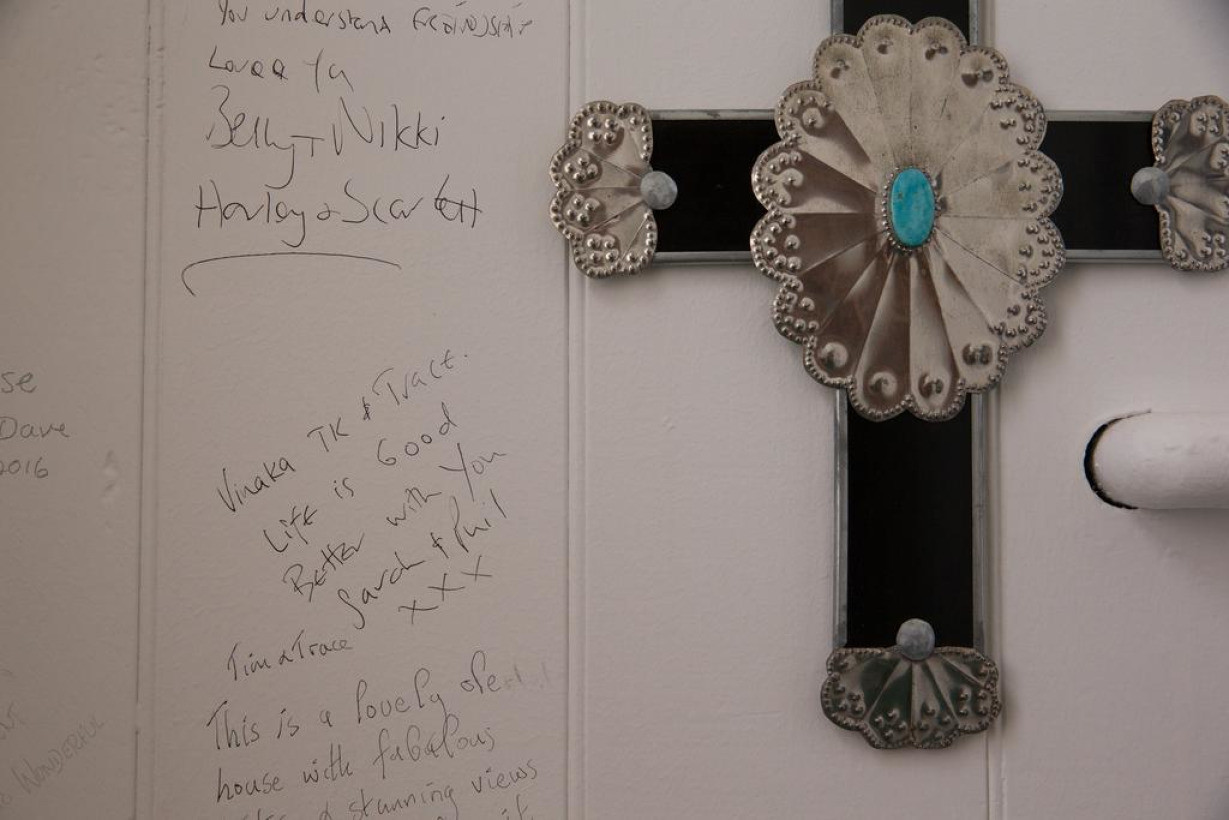 You understand
Loved Ya
Nikki
Harley & Scarlett
se
Dave
2016
Vinaka TK & Tract.
Life is Good
Better with You
Sarah & Phil
x x x
Tim & Trace
This is a lovely
house with fabulous
& stunning views
it
WONDERFUL